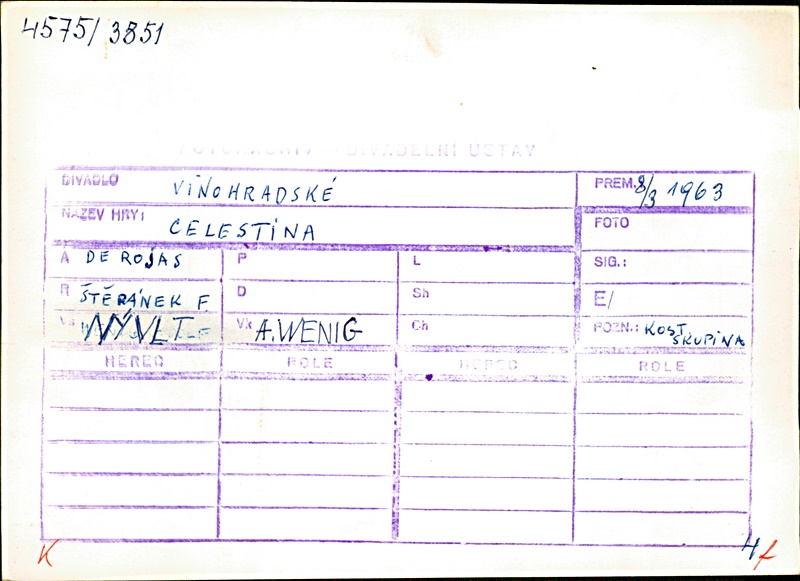 4575/3851
FOTOARCHIV - DIVADELNÍ ÚSTAV
DIVADLO VINOHRADSKÉ PREM. 8/3 1963
NÁZEV HRY: CELESTINA FOTO
A DE ROJAS P L SIG.:
R ŠTĚPÁNEK F. D Sh E/
Vs NÝVLT Vk A. WENIG Ch POZN.: KOST. SKUPINA
HEREC ROLE HEREC ROLE
K 4